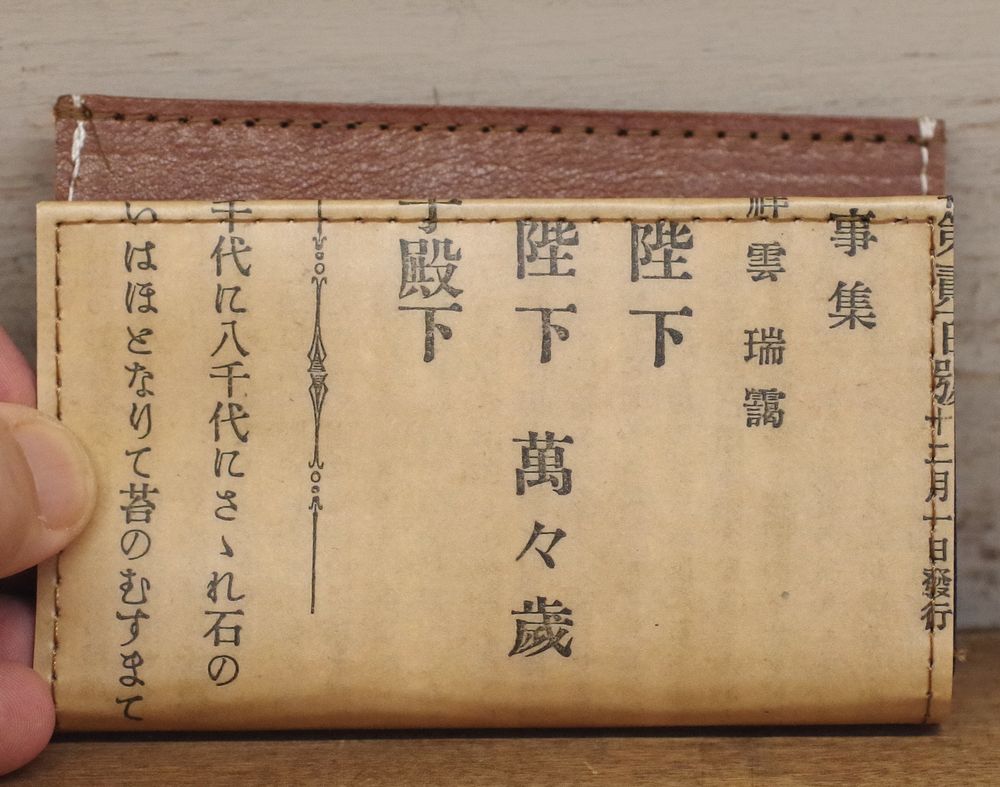 第貳百號 十二月一日發行
事集
祥雲瑞靄
陛下
陛下 萬々歲
子殿下
千代に八千代にさゝれ石の
いはほとなりて苔のむすまて